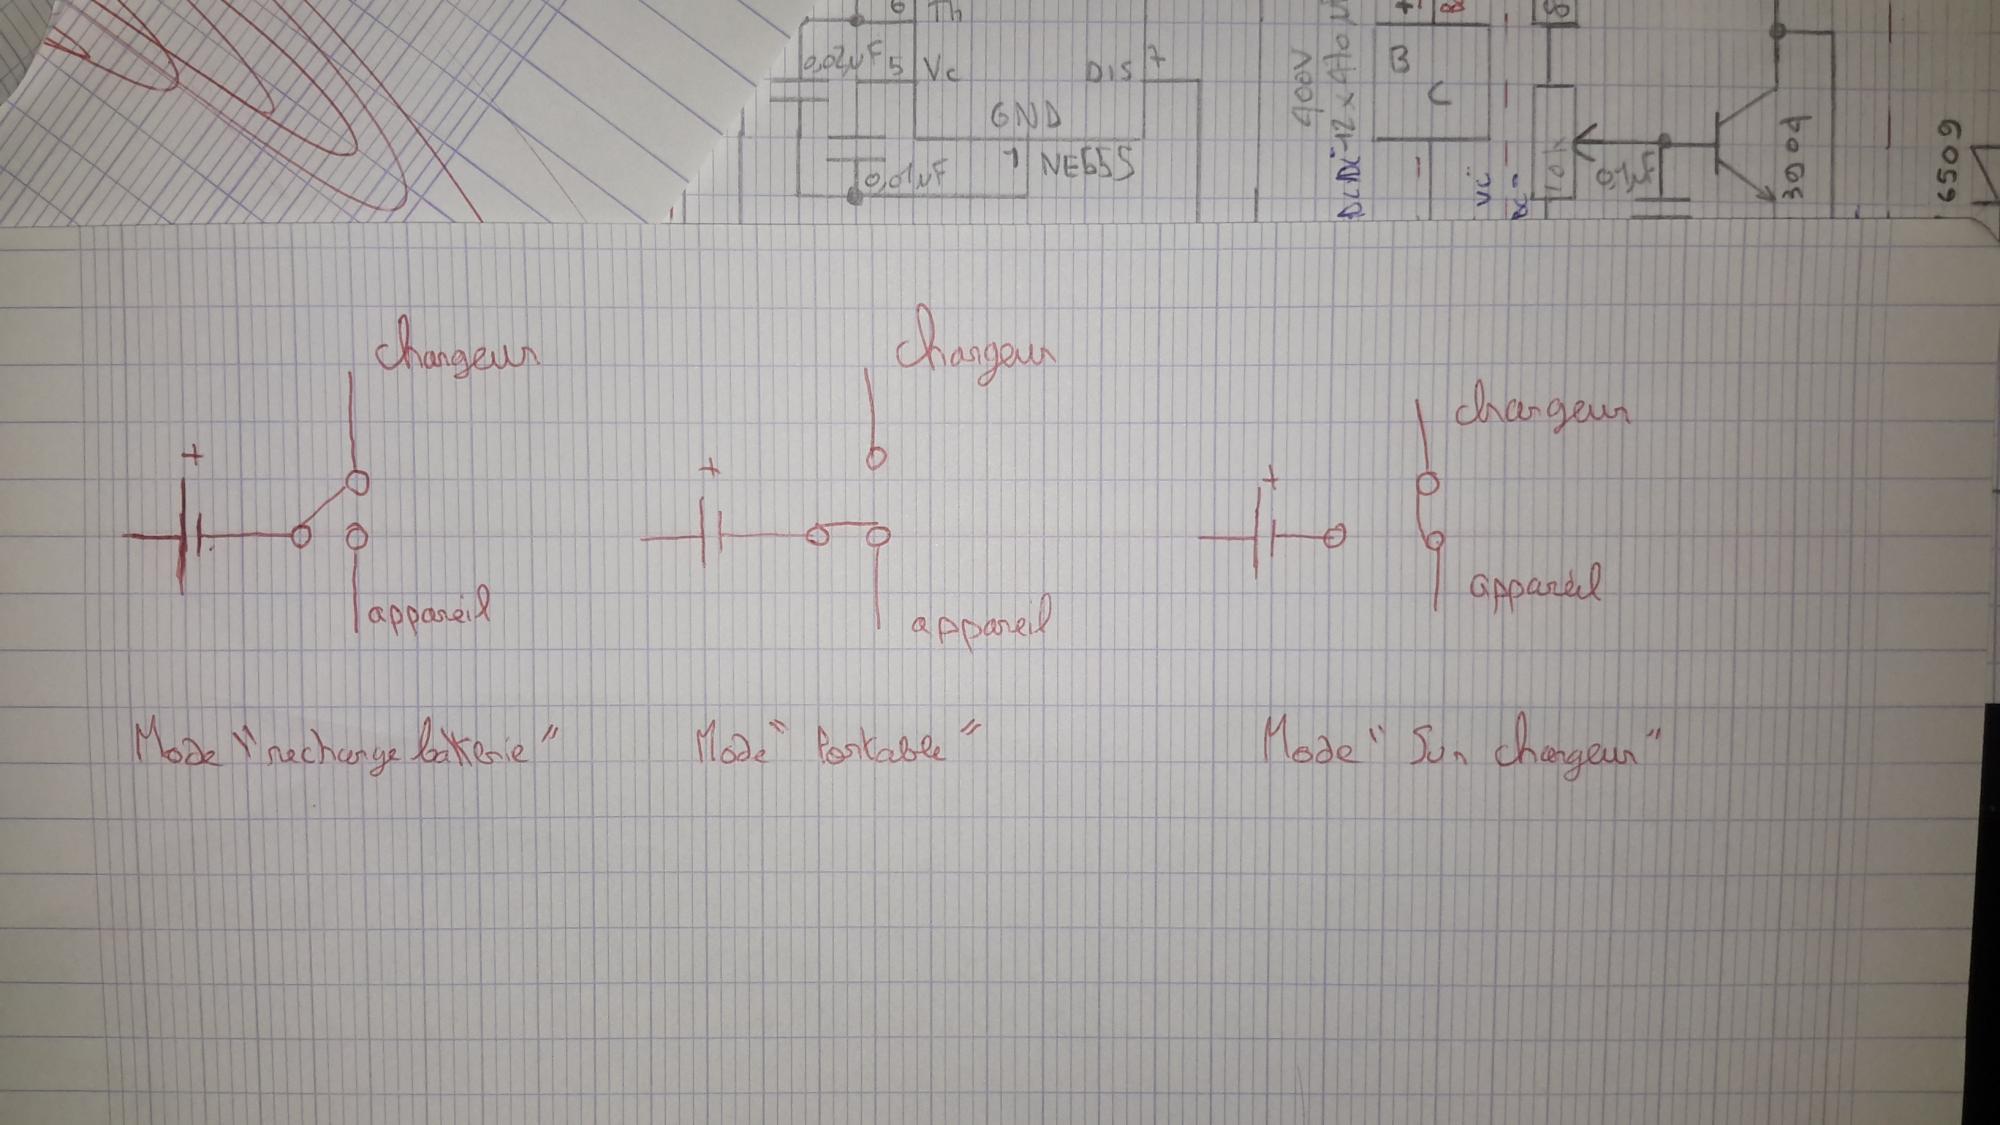 6 Th
0,02µF 5 Vc DIS 7
GND
1 NE555
0,01µF
400V
12 x 470µ
+
B
C
-
VC
10k
0,1µF
3904
6509
chargeur
chargeur
chargeur
+
+
+
appareil
appareil
appareil
Mode "recharge batterie"
Mode "Portable"
Mode "Sur chargeur"